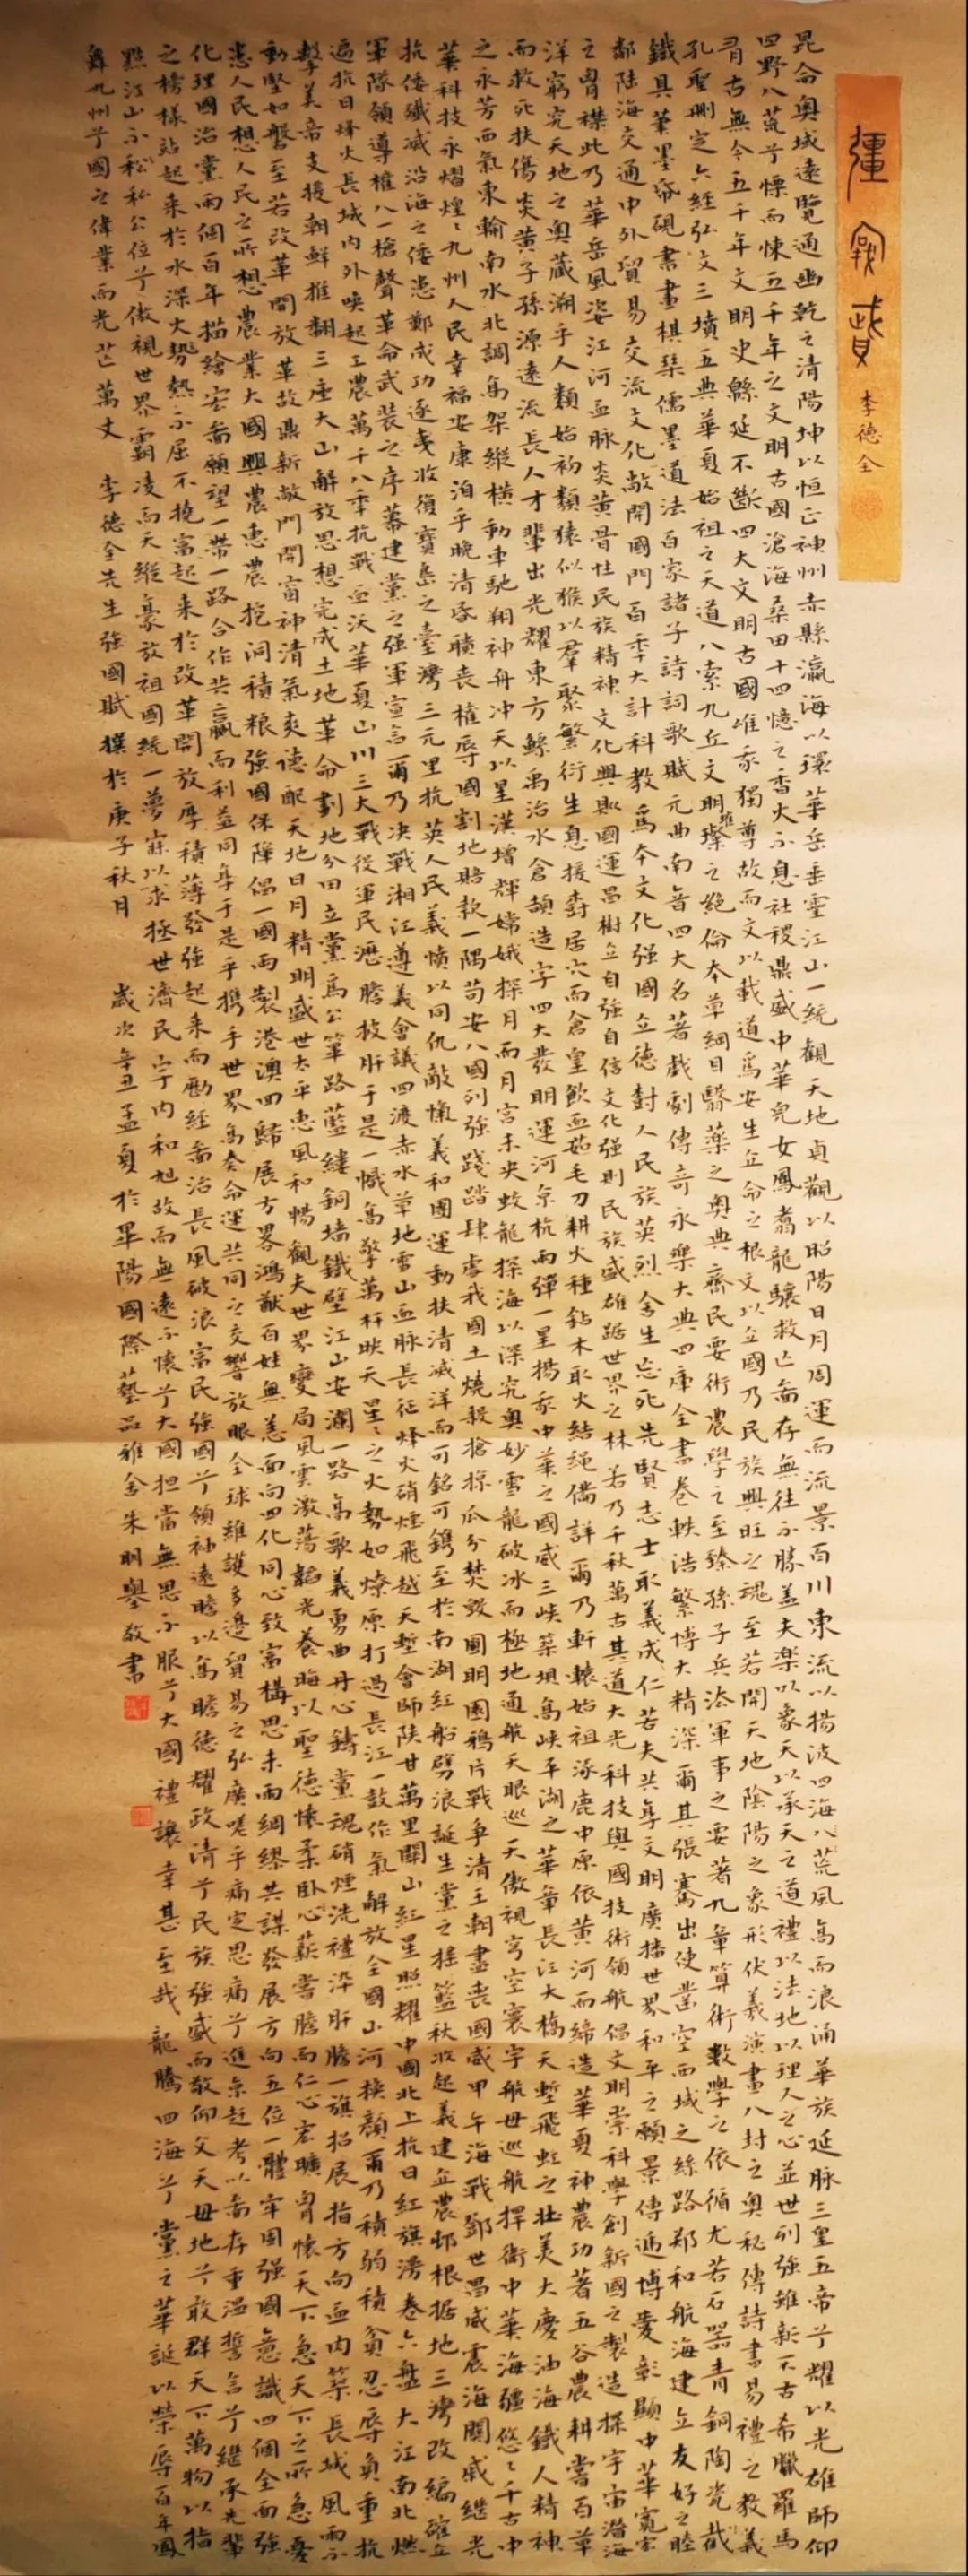 彊國賦 李德全
昆侖奧域遠覽通幽乾之清陽坤以恒正神州赤縣瀛海以環華岳垂靈江山一統觀天地貞觀以昭陽日月周運而流景百川東流以揚波四海八荒風高而浪涌華族延脈三皇五帝兮耀以光雄師仰
四野八荒兮慄而悚五千年之文明古國滄海桑田十四憶之香火不息社稷鼎盛中華兒女鳳翥龍驤救亡啚存無往不勝盖夫樂以象天以承天之道禮以法地以理人之心並世列強雖新不古希臘羅馬
有古無今五千年文明史緜延不斷四大文明古國唯我獨尊故而文以載道爲安生立命之根文以立國乃民族興旺之魂至若開天地陰陽之象形伏羲演畫八卦之奧秘傳詩書易禮之教義
孔聖刪定六經弘文三墳五典華夏始祖之天道八索九丘文明璀璨之絕倫本草綱目醫藥之奧典齊民要術農學之至臻孫子兵法軍事之要著九章算術數學之依循尤若石器青銅陶瓷截
鐵具筆墨帋硯書畫棋琴儒墨道法百家諸子詩詞歌賦元曲南音四大名著戲劇傳奇永樂大典四庫全書卷軼浩繁博大精深爾其張騫出使鑿空西域之絲路郑和航海建立友好之睦
鄰陸海交通中外貿易交流文化敞開國門百季大計科教爲本文化强國立德封人民族英烈舍生忘死先賢志士取義成仁若夫共享文明廣播世界和平之願景傳遞博愛彰顯中華寬宏
之胷襟此乃華岳風姿江河血脈炎黃骨性民族精神文化興則國運昌樹立自強自信文化强則民族盛雄踞世界之林若乃千秋萬古其道大光科技與國技術領航倡文明崇科學創新國之製造探宇宙潛海
洋窮究天地之奧藏溯乎人類始初類猿似猴以羣聚繁衍生息援壽居穴而倉皇飲血茹毛刀耕火種鉆木取火結繩備詳爾乃軒轅始祖逐鹿中原依黃河而締造華夏神農功著五谷農耕嘗百草
而救死扶傷炎黃子孫源遠流長人才輩出光耀東方鯀禹治水倉頡造字四大發明運河京杭兩彈一星揚我中華之國威三峽築壩高峽平湖之華章長江大橋天塹飛虹之壯美大慶油海鐵人精神
之永芳西氣東輸南水北調高架縱橫動車馳翔神舟冲天以星漢增輝嫦娥探月而月宮未央蛟龍探海以深究奧妙雪龍破冰而極地通航天眼巡天傲視穹空寰宇航母巡航捍衛中華海疆悠〻千古中
華科技永熠煌〻九州人民幸福安康洎乎晚清昏聵喪權辱國割地賠款一隅苟安八國列強踐踏肆虐我國土燒殺搶掠瓜分焚毀圓明園鴉片戰争清王朝盡喪國威甲午海戰鄧世昌威震海關戚繼光
抗倭殲滅沿海之倭患鄭成功逐夷收復寶島之臺灣三元里抗英人民義憤以同仇敵愾義和國運動扶清滅洋而可銘可鐫至於南湖紅船劈浪誕生黨之摇籃秋收起義建立農邨根据地三灣改編確立
軍隊領導權八一槍聲革命武装之序幕建黨之强軍宣言爾乃决戰湘江遵義會議四渡赤水草地雪山血脈長征烽火硝煙飛越天塹會師陕甘萬里關山紅星照耀中國北上抗日紅旗漫卷六盤大江南北燃
遍抗日烽火長城内外喚起工農萬千八季抗戰血沃華夏山川三大戰役軍民瀝膽披肝于是一幟高擎萬杆映天星〻之火勢如燎原打過長江一鼓作氣解放全國山河換顏爾乃積弱積貧忍辱負重抗
擊美帝支援朝鮮推翻三座大山解放思想完成土地革命劃地分田立黨爲公篳路藍縷銅墻鐵壁江山安瀾一路高歌義勇曲丹心鑄黨魂硝煙洗禮染肝膽一旗招展指方向血肉築長城風雨不
動堅如磐至若改革開放革故鼎新敞門開窗神清氣爽德配天地日月精明盛世太平惠風和暢觀夫世界變局風雲激蕩韜光養晦以聖德懷柔卧心薪嘗膽而仁心宏曠胷懷天下急天下之所急憂
患人民想人民之所想農業大國興農惠農挖洞積粮强國保障倡一國兩製港澳回歸展方畧鴻猷百姓無恙面向四化同心致富構思未雨綢繆共謀發展方向五位一體牢固强國意識四個全面强
化理國治黨兩個百年描繪宏啚願望一帶一路合作共贏而利益同享于是乎攜手世界高奏命運共同之交響放眼全球維護多邊貿易之弘廣嗟乎痛定思痛兮進京赶考以啚存重温誓言兮繼承先輩
之榜樣站起来於水深火勢熱不屈不撓富起来於改革開放厚積薄發強起来而勵經啚治長風破浪富民強國兮領袖遠瞻以高瞻德耀政清兮民族強盛而敬仰父天母地兮敢群天下萬物以指
點江山不私公位兮傲視世界霸凌而天縱豪放祖國統一夢寐以求拯世濟民宇内和旭故而無遠不懷兮大國担當無思不服兮大國禮讓幸甚至哉龍騰四海兮黨之華誕以榮辱百年圓
舞九州兮國之偉業而光芒萬丈 李德全先生強國賦撰於庚子秋月 歲次辛丑孟夏於畢陽國際藝品雅舍朱明舉敬書